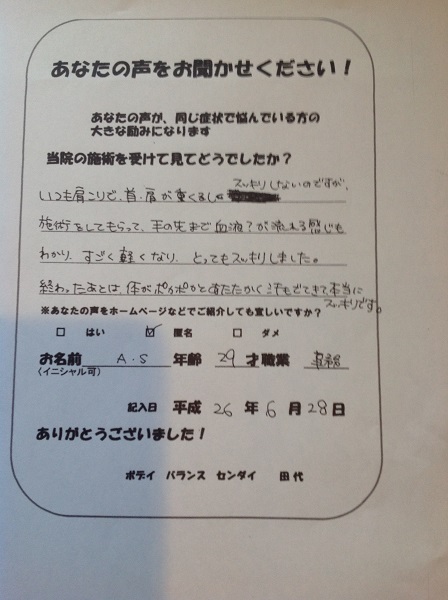 あなたの声をお聞かせください！
あなたの声が、同じ症状で悩んでいる方の
大きな励みになります
当院の施術を受けて見てどうでしたか？
いつも肩こりで、首、肩が重くるしく スッキリしないのですが、
施術をしてもらって、手の先まで血液？が流れる感じも
わかり、すごく軽くなり、とってもスッキリしました。
終わったあとは、体がポカポカとあたたかく汗もでてきて本当に
スッキリです。
※あなたの声をホームページなどでご紹介しても宜しいですか？
□ はい ☑ 匿名 □ ダメ
お名前 A.S 年齢 29 才職業 事務
（イニシャル可）
記入日 平成 26 年 6 月 28 日
ありがとうございました！
ボディ バランス センダイ 田代